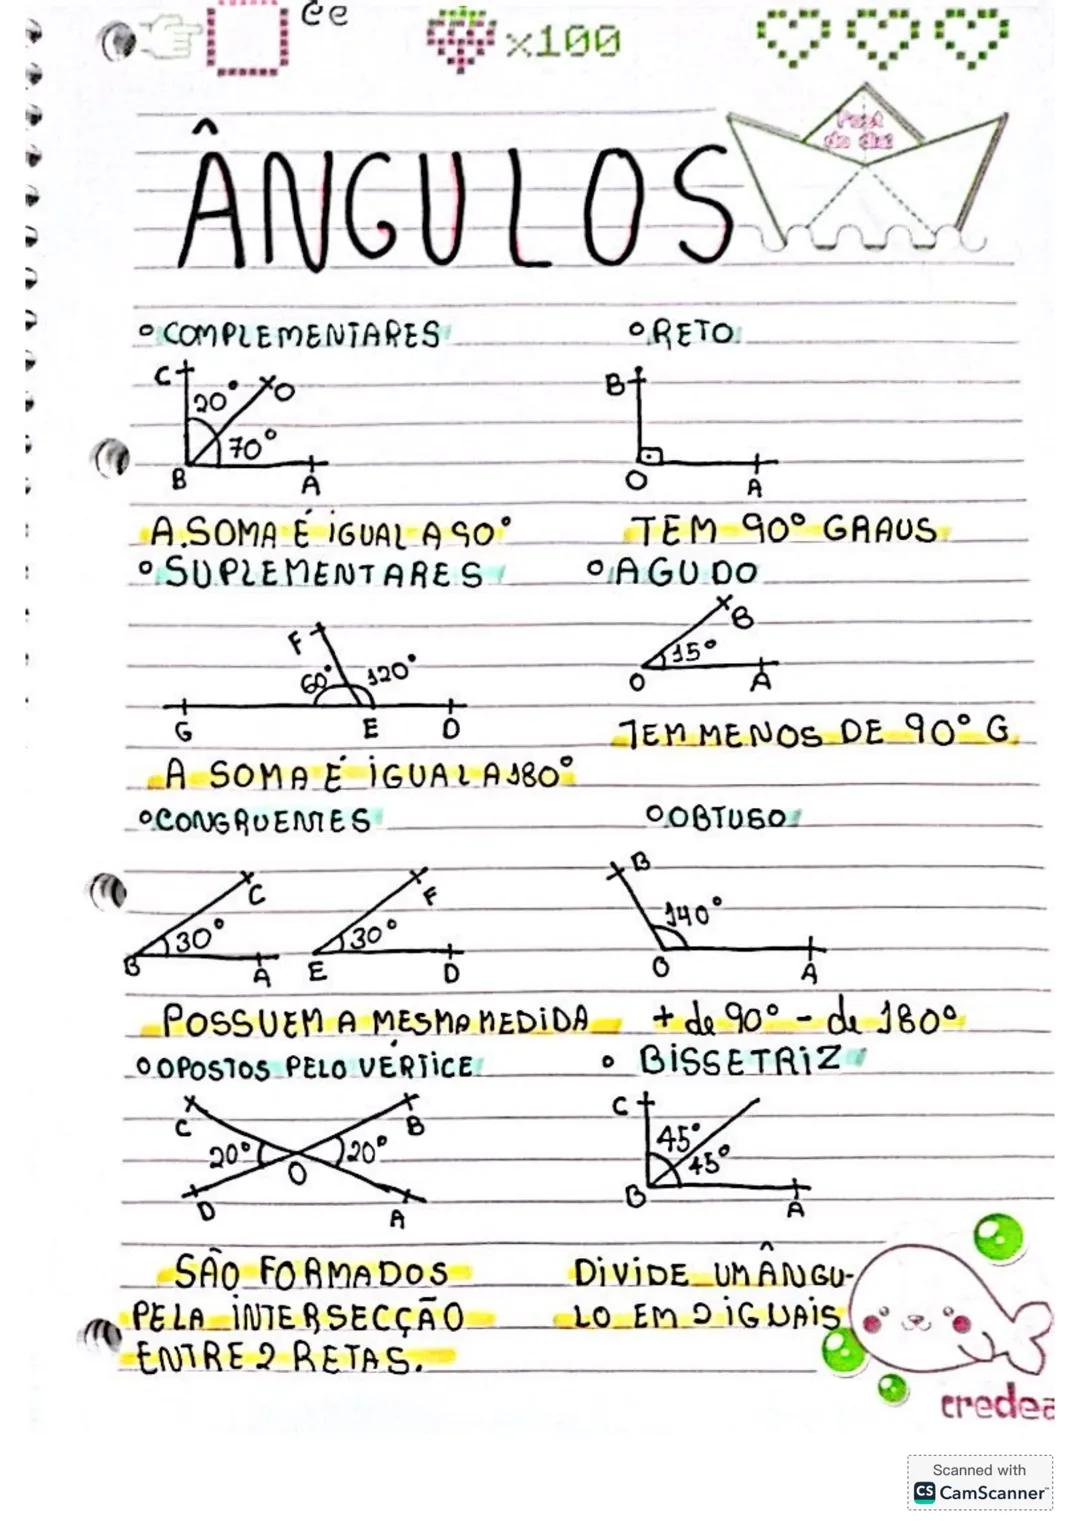 ee
x100
ÂNGULOS
° COMPLEMENTARES
° RETO
C
20°
O
70°
B
A
B
O
A
A SOMA É IGUAL A 90°
TEM 90° GRAUS
° SUPLEMENTARES
° AGUDO
F
60°
120°
G
E
D
B
15°
O
A
TEM MENOS DE 90° G.
A SOMA É IGUAL A 180°
° CONGRUENTES
° OBTUSO
C
30°
B
A
F
30°
E
D
B
140°
O
A
POSSUEM A MESMA MEDIDA
+ de 90° - de 180°
° OPOSTOS PELO VÉRTICE
° BISSETRIZ
C
B
20°
20°
O
D
A
C
45°
45°
B
A
SÃO FORMADOS
PELA INTERSECÇÃO
ENTRE 2 RETAS.
DIVIDE UM ÂNGU-
LO EM 2 IGUAIS
credea
Scanned with
CS CamScanner